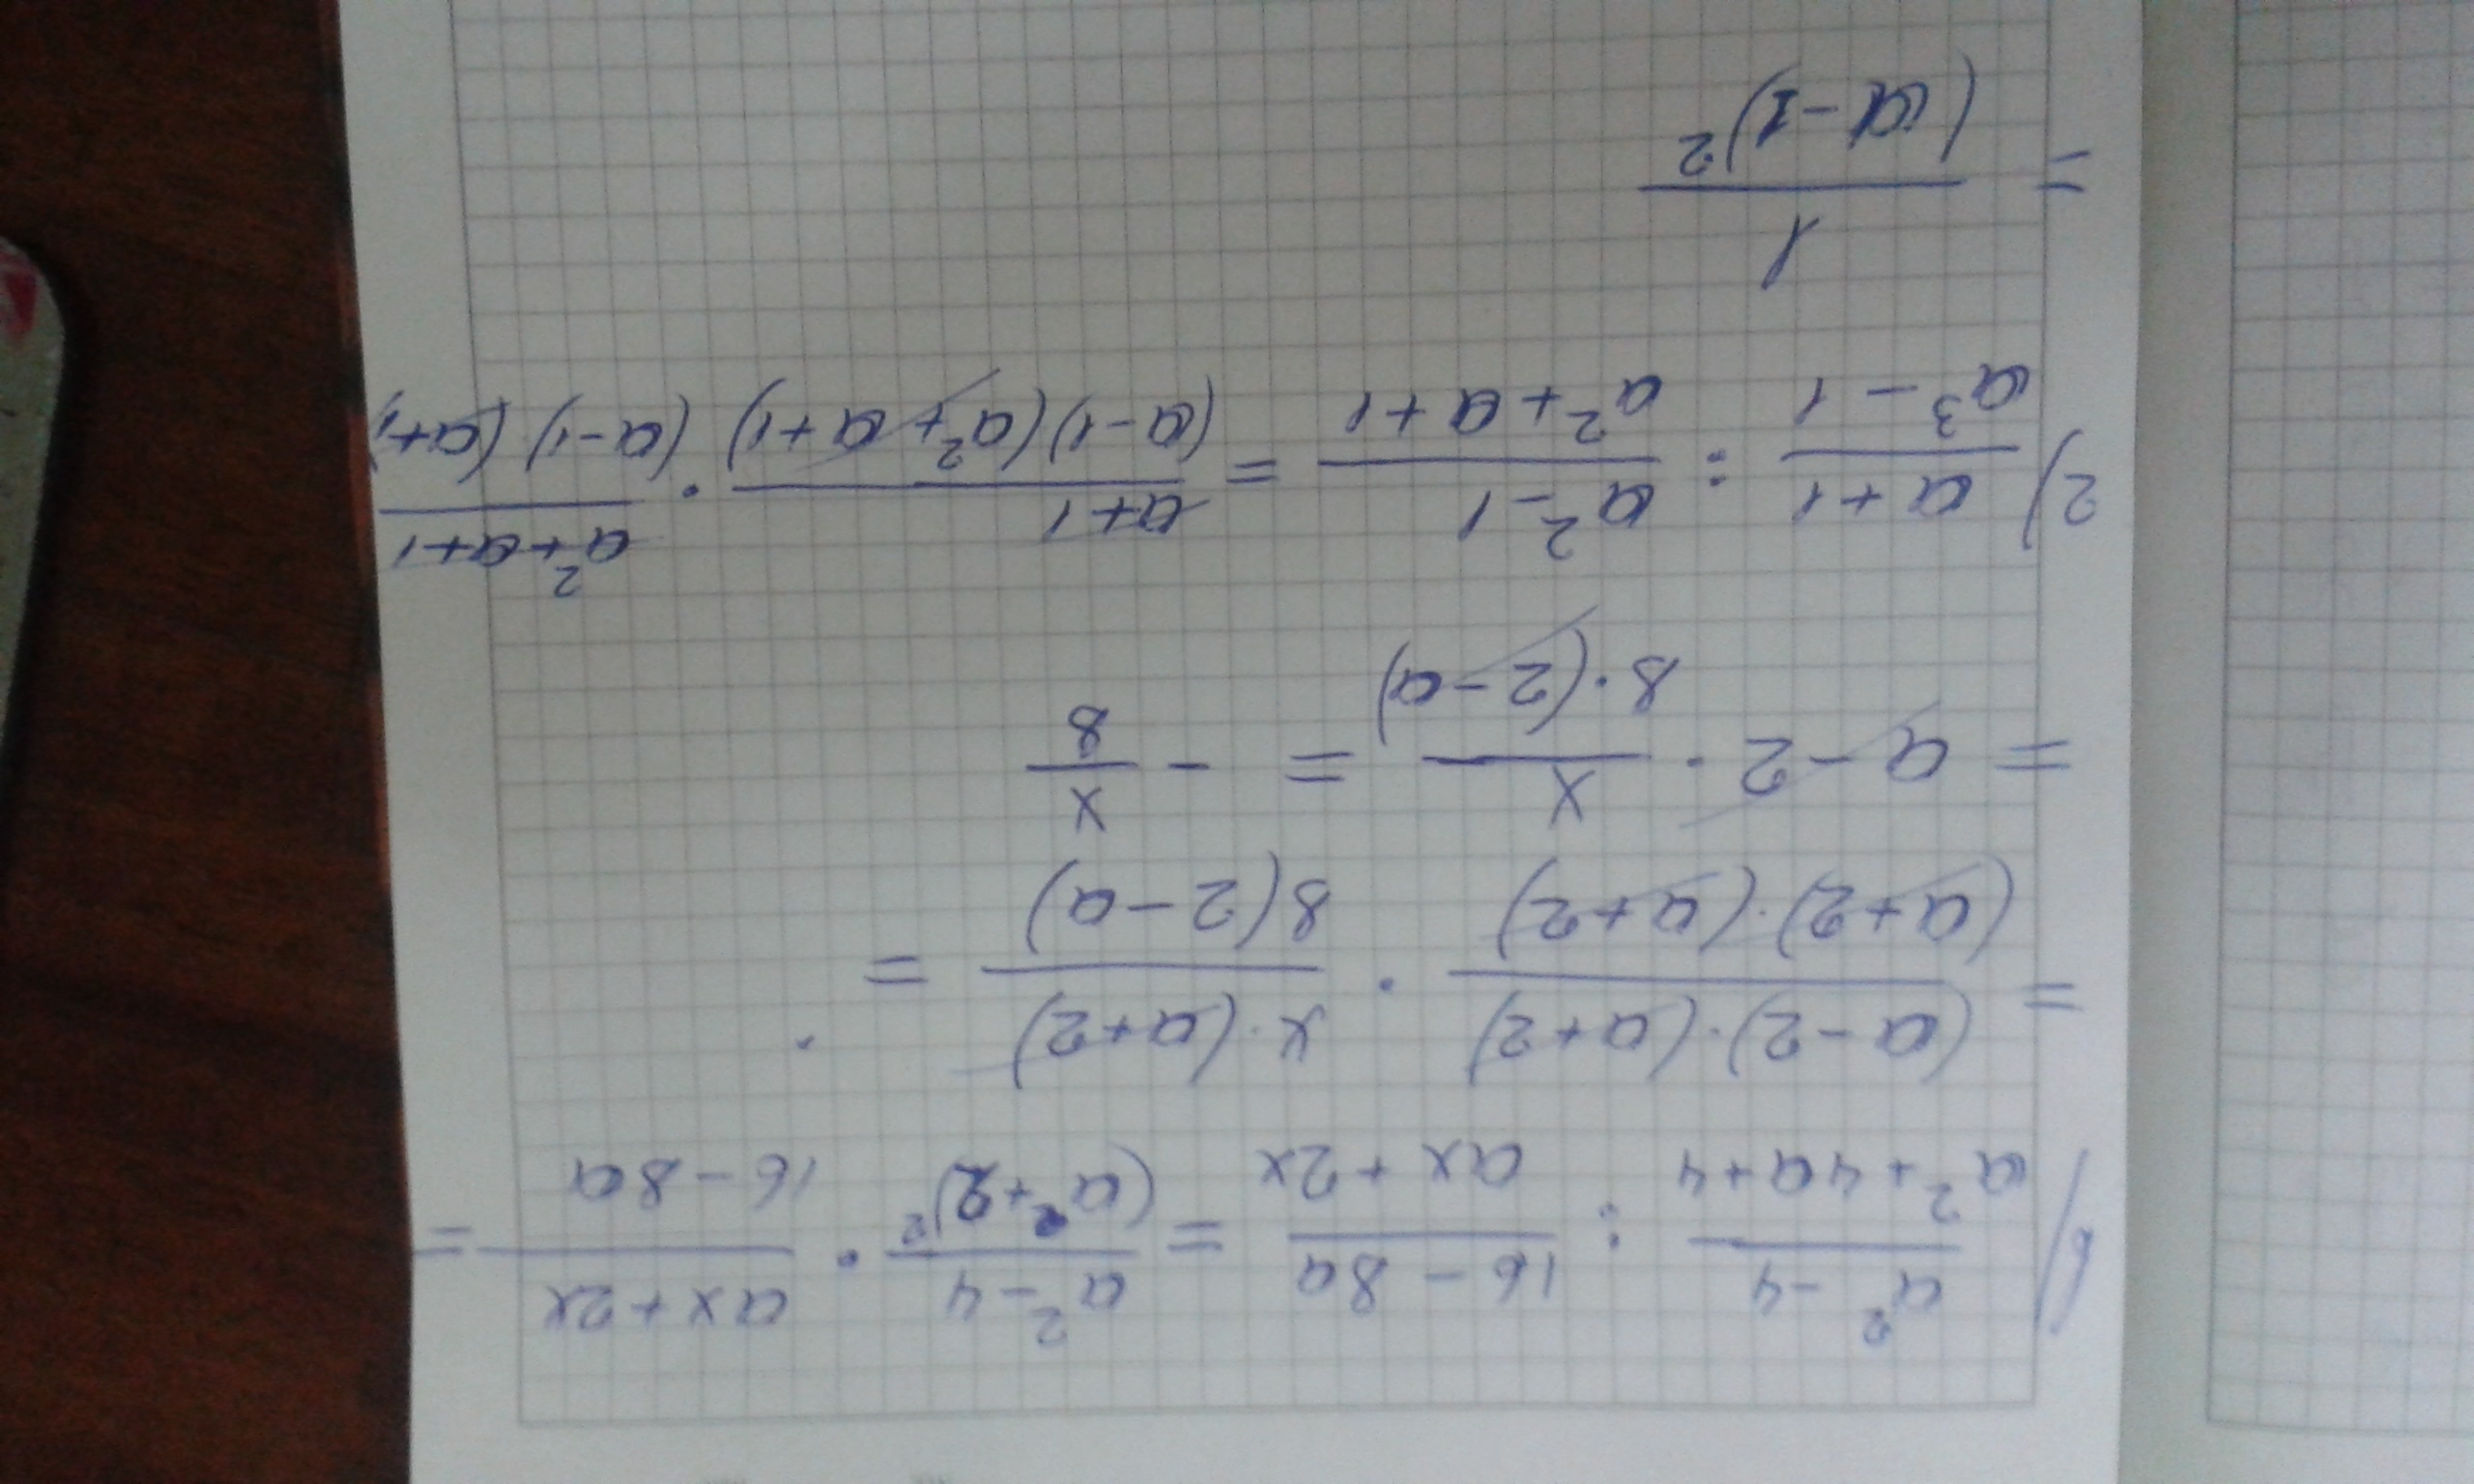 1) (a² - 4)/(a² + 4a + 4) : (16 - 8a)/(ax + 2x) = (a² - 4)/(a + 2)² · (ax + 2x)/(16 - 8a) =
= ((a - 2)·(a + 2))/((a + 2)·(a + 2)) · (x·(a + 2))/(8(2 - a)) =
= a - 2 · x/(8·(2 - a)) = - x/8
2) (a + 1)/(a³ - 1) : (a² - 1)/(a² + a + 1) = (a+1)/((a-1)(a²+a+1)) · (a²+a+1)/((a-1)(a+1))
= 1/(a-1)²